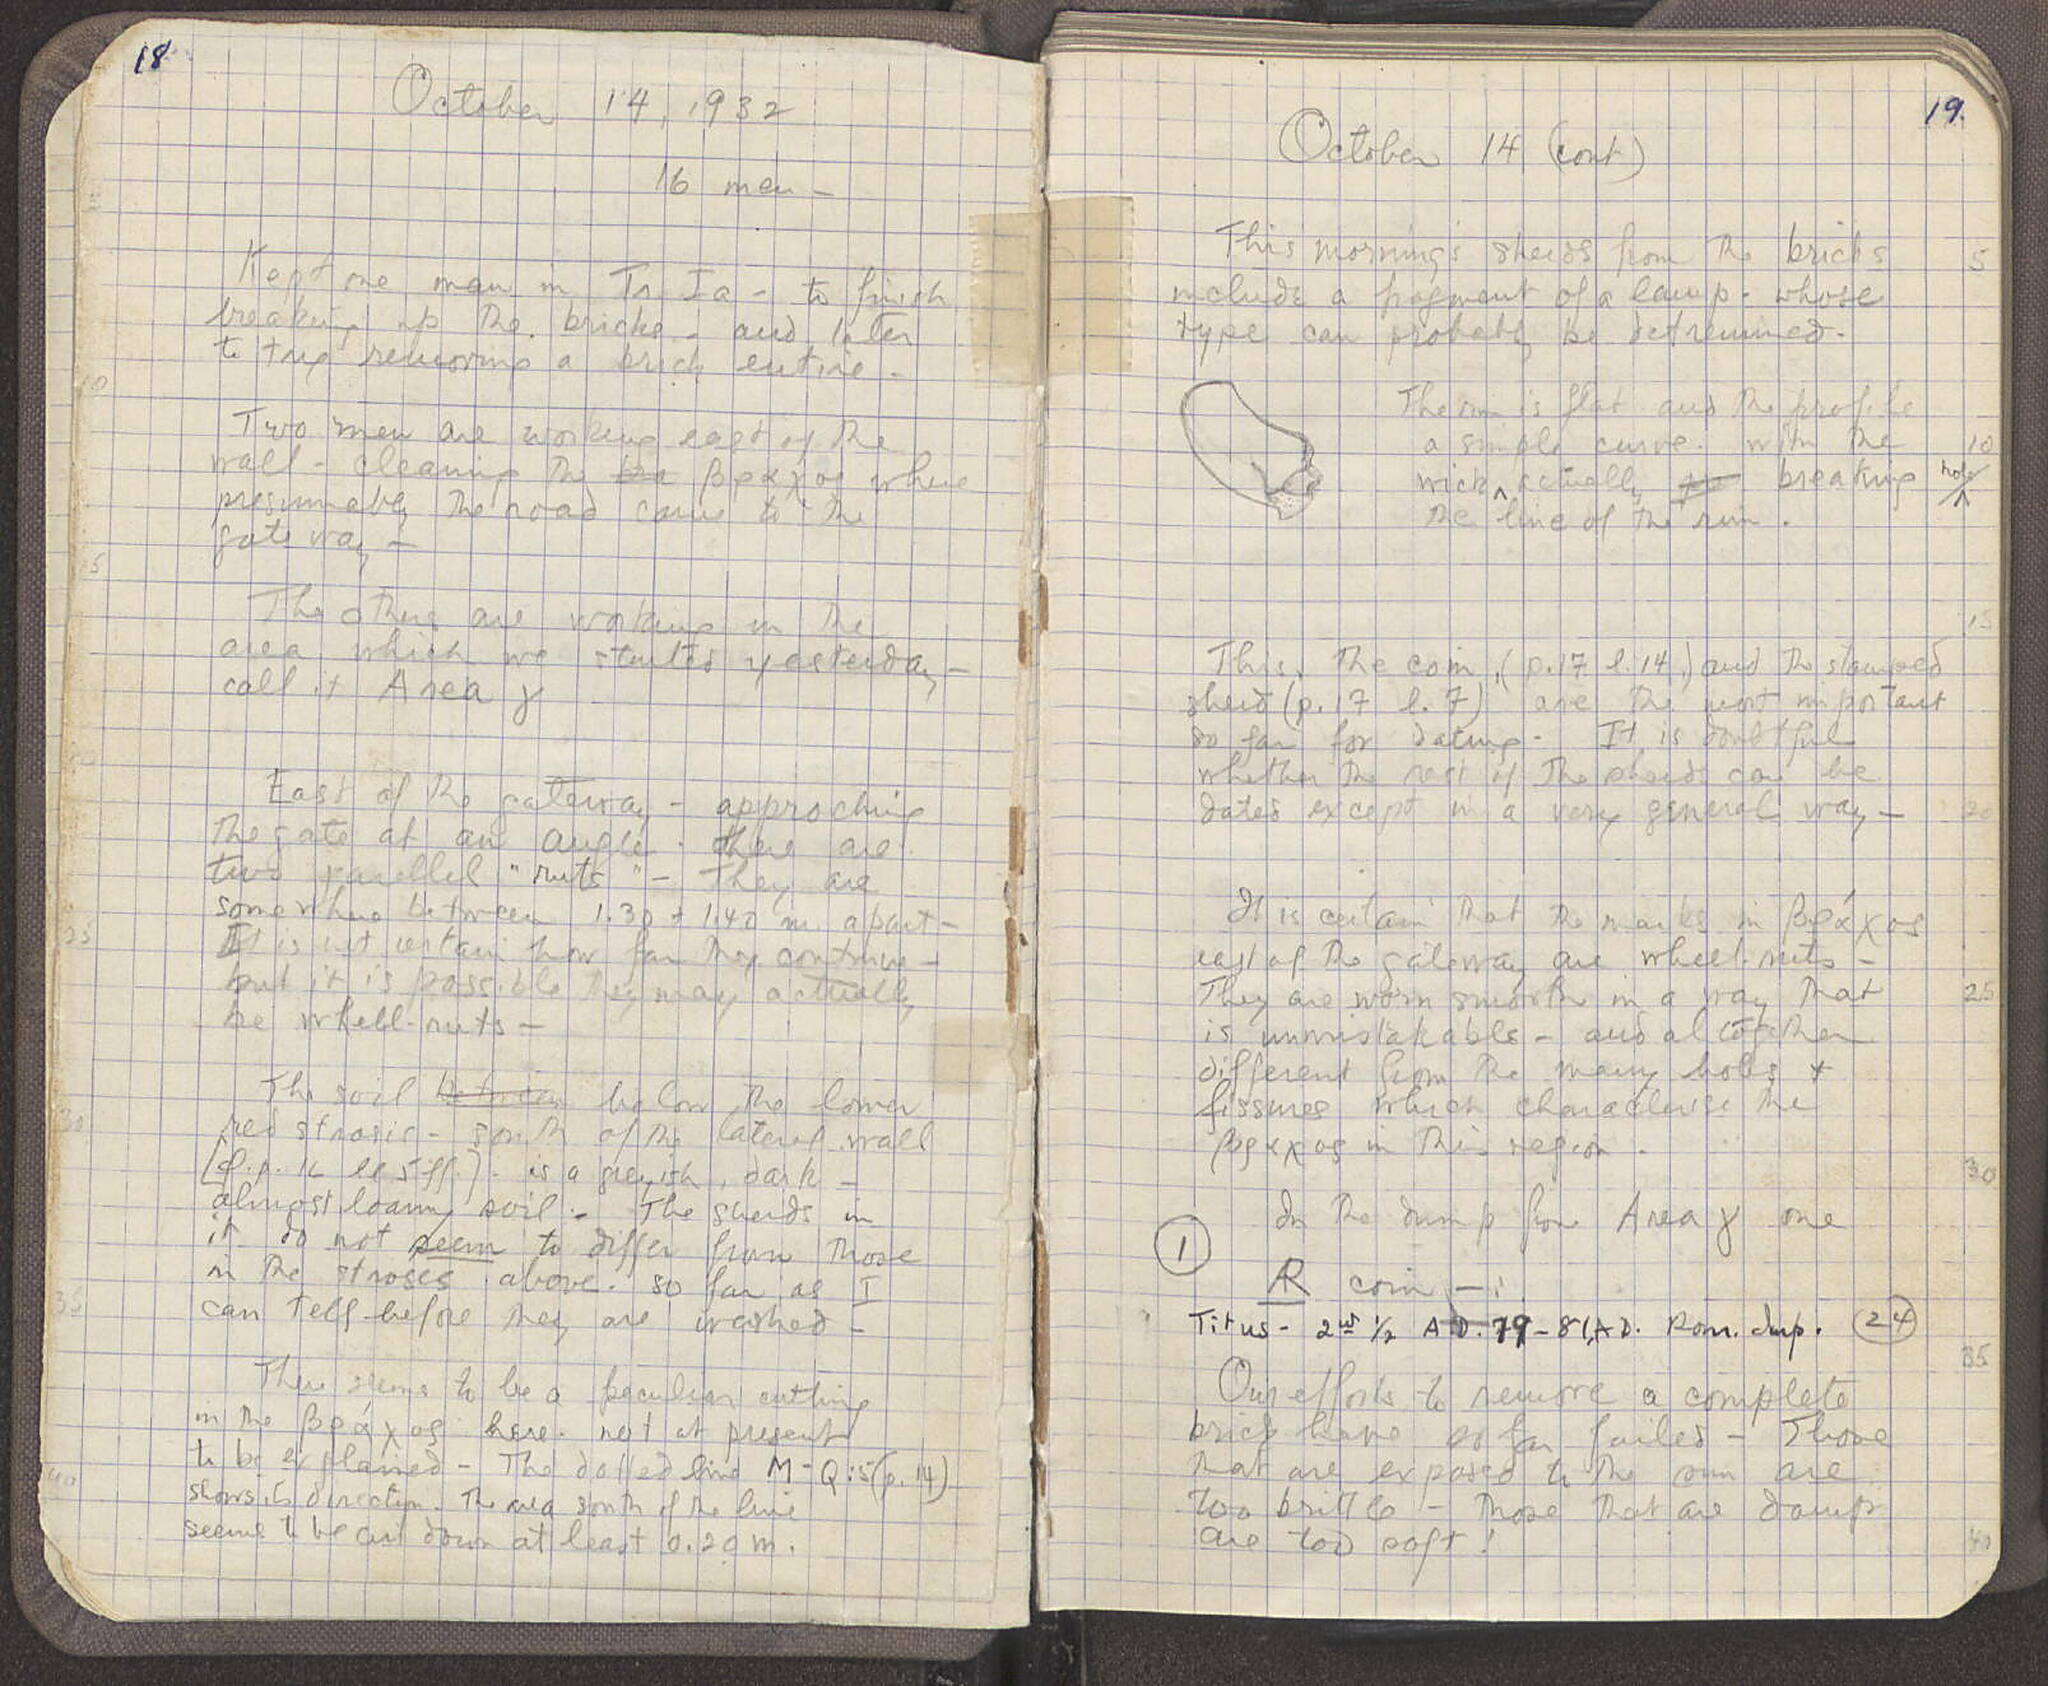 18
October 14, 1932
16 men –
Kept one man in Tr Ia – to finish
breaking up the bricks – and later
to try removing a brick entire –
Two men are working east of the
wall – cleaning the βράχος where
presumably the road came to the
gateway –
The others are working in the
area which we started yesterday –
call it Area γ
East of the gateway – approching
the gate at an angle – there are
two parallel "ruts" – They are
somewhere between 1.30 + 1.40 m. apart –
It is not certain how far they continue –
but it is possible they may actually
be wheel-ruts –
The soil between below the lower
red strosis – south of the lateral wall
is a greyish, dark –
almost loamy soil – The sherds in
it do not seem to differ from those
in the stroses above – so far as I
can tell before they are washed –
There seems to be a peculiar cutting
in the βράχος here – not at present
to be explained – The dotted line M-Q:5 (p. 14)
shows its direction. The area south of the line
seems to be cut down at least 0.20 m.
5
10
15
20
25
30
35
40
19.
October 14 (cont)
This morning's sherds from the bricks
include a fragment of a lamp – whose
type can probably be determined –
The rim is flat and the profile
a simple curve – with the
wick hole actually breaking
the line of the rim.
This, the coin, (p. 17 l. 14,) and the stamped
sherd (p. 17 l. 7) are the most important
so far for dating – It is doubtful
whether the rest of the sherds can be
dated except in a very general way –
It is certain that the marks in βράχος
east of the gateway are wheel-ruts –
They are worn smooth in a way that
is unmistakable – and altogether
different from the many holes +
fissures which characterise the
βραχος in this region.
In the dump from Area γ one
1
AR coin –:
Titus – 2nd 1/2 A.D. 79–81, A.D. Rom. Imp. 24
Our efforts to remove a complete
brick have so far failed – Those
that are exposed to the sun are
too brittle – those that are damp
are too soft!
5
10
15
20
25
30
35
40